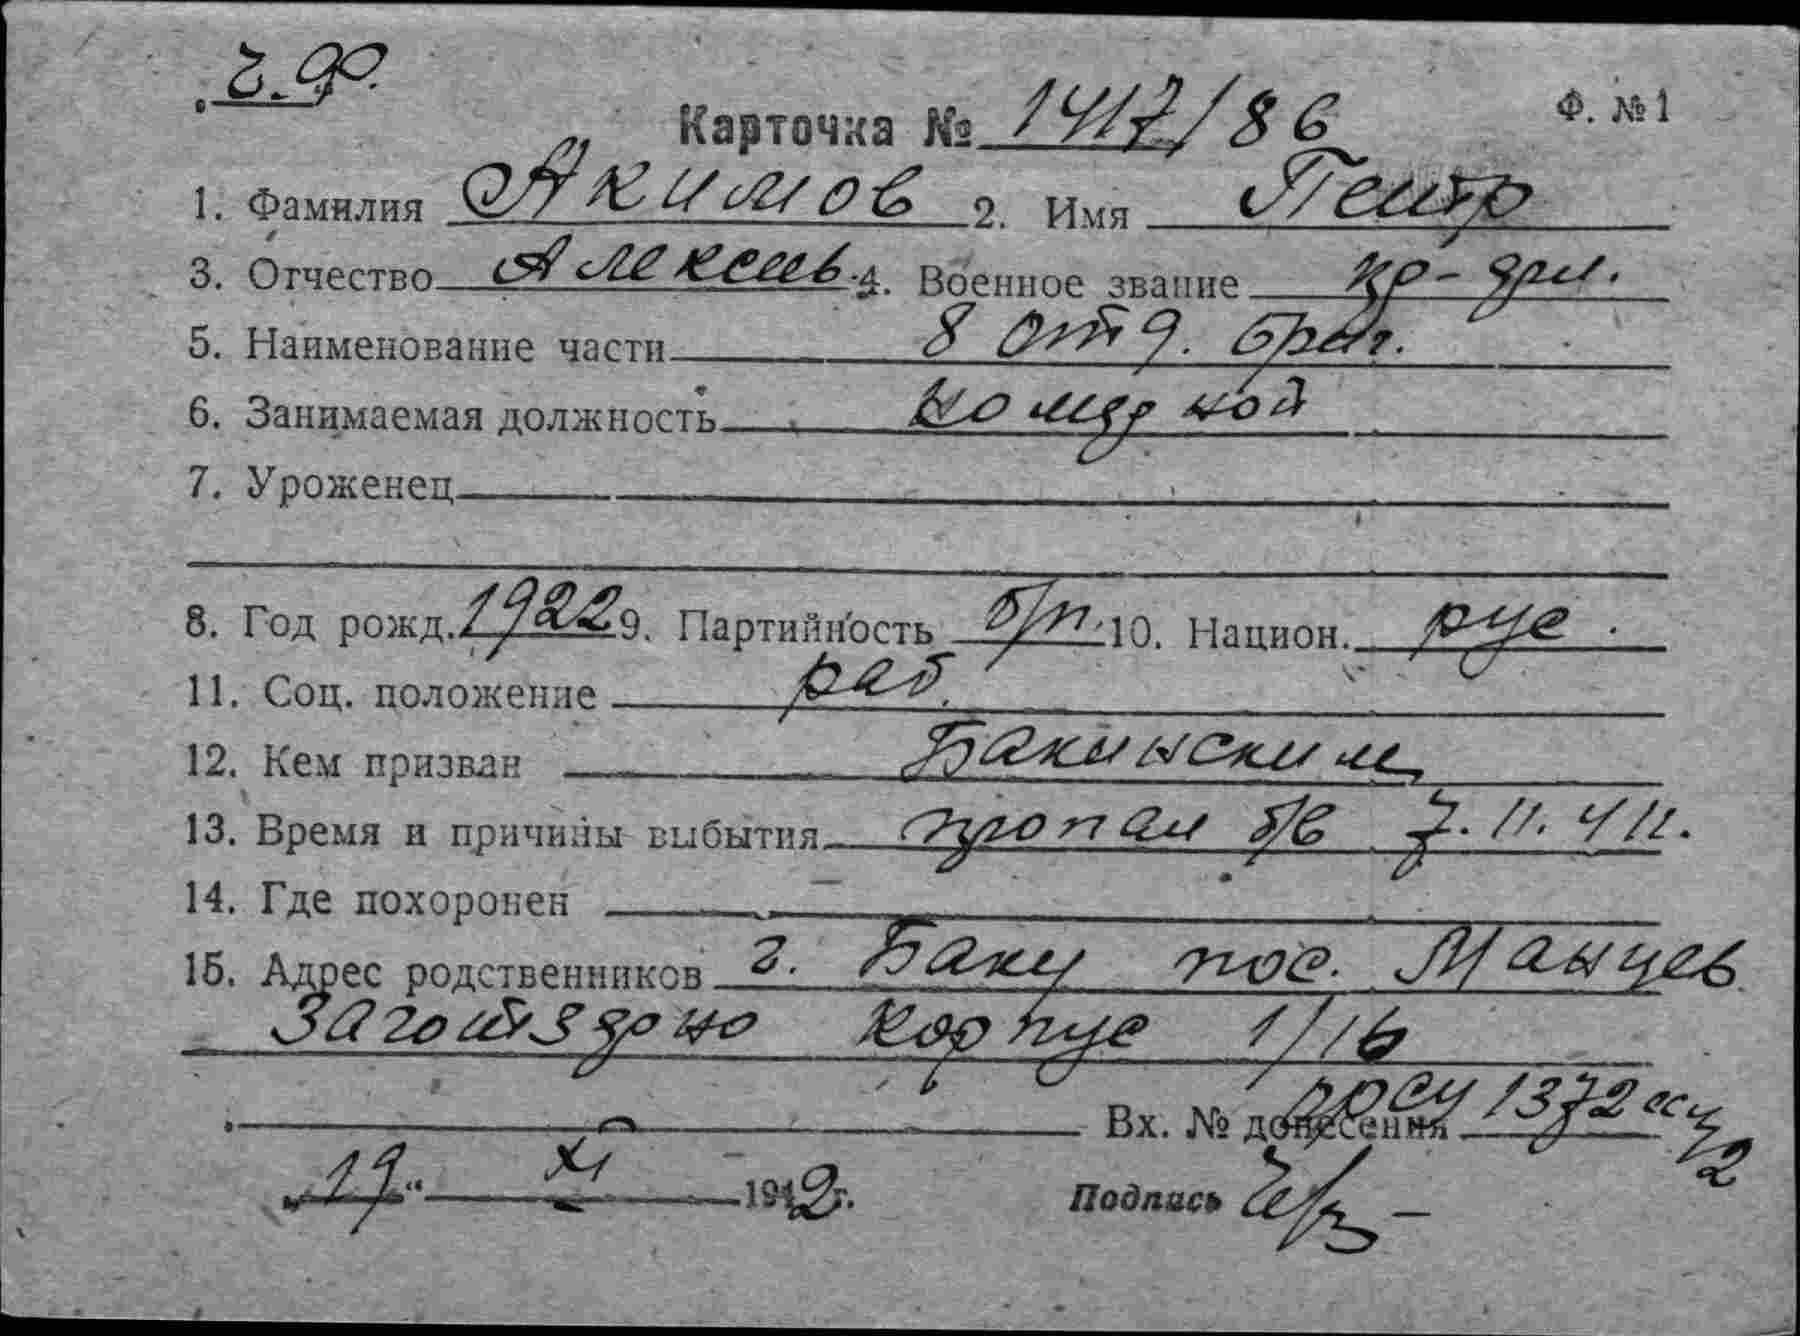 ч.ф.
Карточка № 1417/86 Ф. №1
1. Фамилия Акимов 2. Имя Петр
3. Отчество Алексеев. 4. Военное звание кр-
5. Наименование части 8 отд. бриг.
6. Занимаемая должность
7. Уроженец
8. Год рожд. 1922 9. Партийность б/п. 10. Национ. рус.
11. Соц. положение раб.
12. Кем призван Бакинским
13. Время и причины выбытия пропал б/в 7.
14. Где похоронен
15. Адрес родственников г. Баку пос. Манцев
корпус 1/16
Вх. № донесения 1372
„19“ XI 1942 г. Подпись